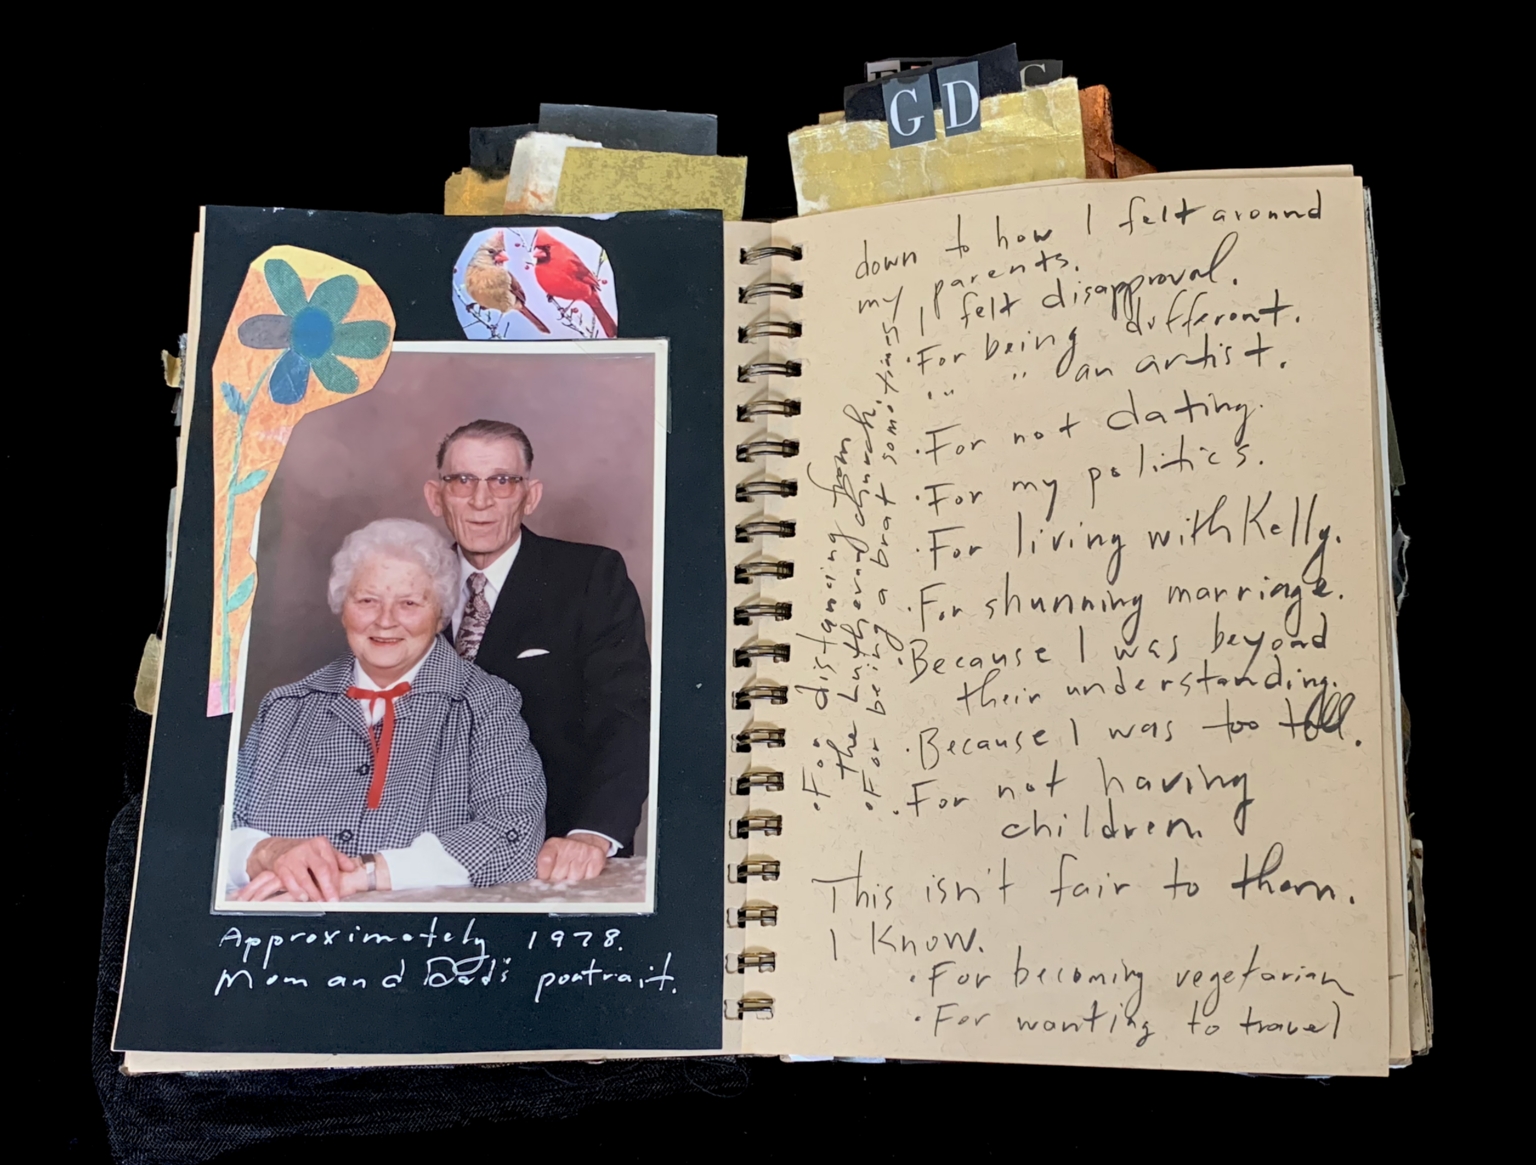 G D
Approximately 1978.
Mom and Dad's portrait.
down to how I felt around
my parents.
I felt disapproval.
·For being different.
" " an artist.
·For not dating.
·For my politics.
·For living with Kelly.
·For shunning marriage.
·Because I was beyond
their understanding.
·Because I was too tall.
·For not having
children.
This isn't fair to them.
I know.
·For becoming vegetarian
·For wanting to travel
·For distancing from
the Lutheran church.
·For being a brat sometimes